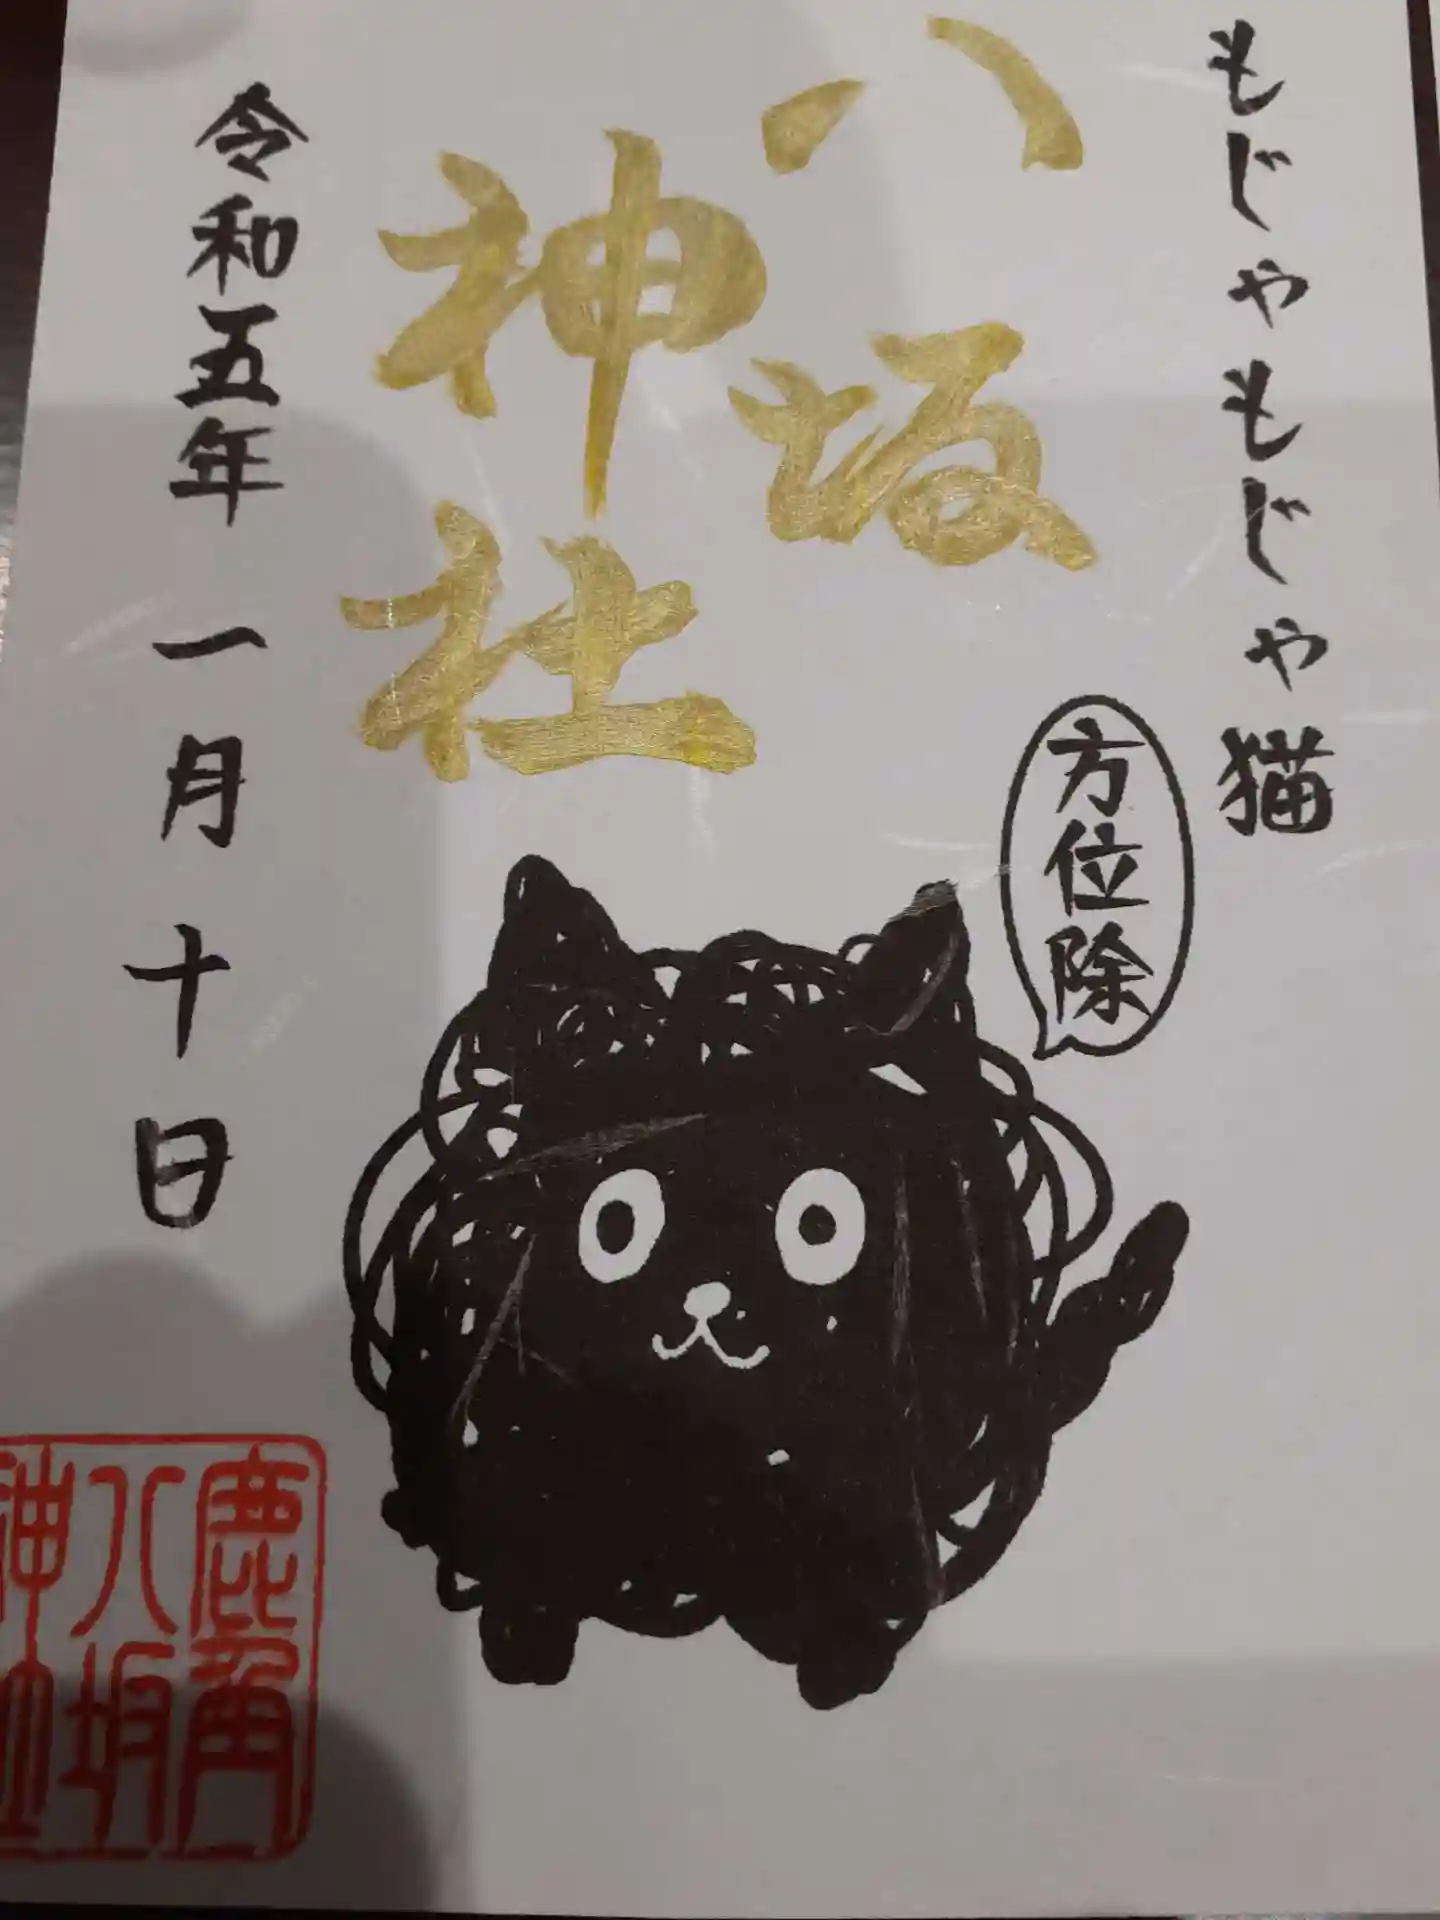 もじゃもじゃ猫
方位除
八坂
神社
令和五年一月十日
鹿角
八坂
神社